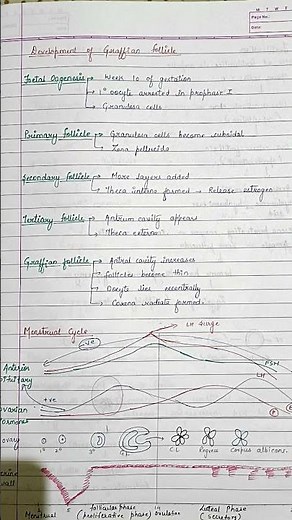 M T W T
Page No.:
Date:
Development of Graffian follicle
Foetal Oogenesis → Week 10 of gestation
→ 1° oocyte arrested in prophase I
→ Granulosa cells
Primary Follicle → Granulosa cells become cuboidal
→ Zona pellucida
Secondary Follicle → More layers added
→ Theca interna formed → Release estrogen
Tertiary follicle → Antrum cavity appears
→ Theca externa
Graffian follicle → Antral cavity increases
→ follicles become thin
→ Oocyte lies eccentrally
→ Corona radiata formed
Menstrual Cycle
LH surge
-ve
Anterior
pituitary
FSH
LH
+ve
ovarian
hormones
E
ovary
1° 2° 3° G.F. C.L Regress Corpus albicans
wall
Menstrual follicular phase (proliferative phase) ovulation Luteal Phase (secretory)